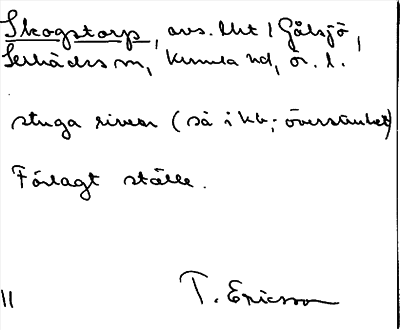 Skogstorp, avs. tht 1 Gålsjö,
Lerbäcks sn, Kumla hd, ör. l.
stuga riven (så i kb; översänket)
Förlagt ställe.
11 T. Ericsson